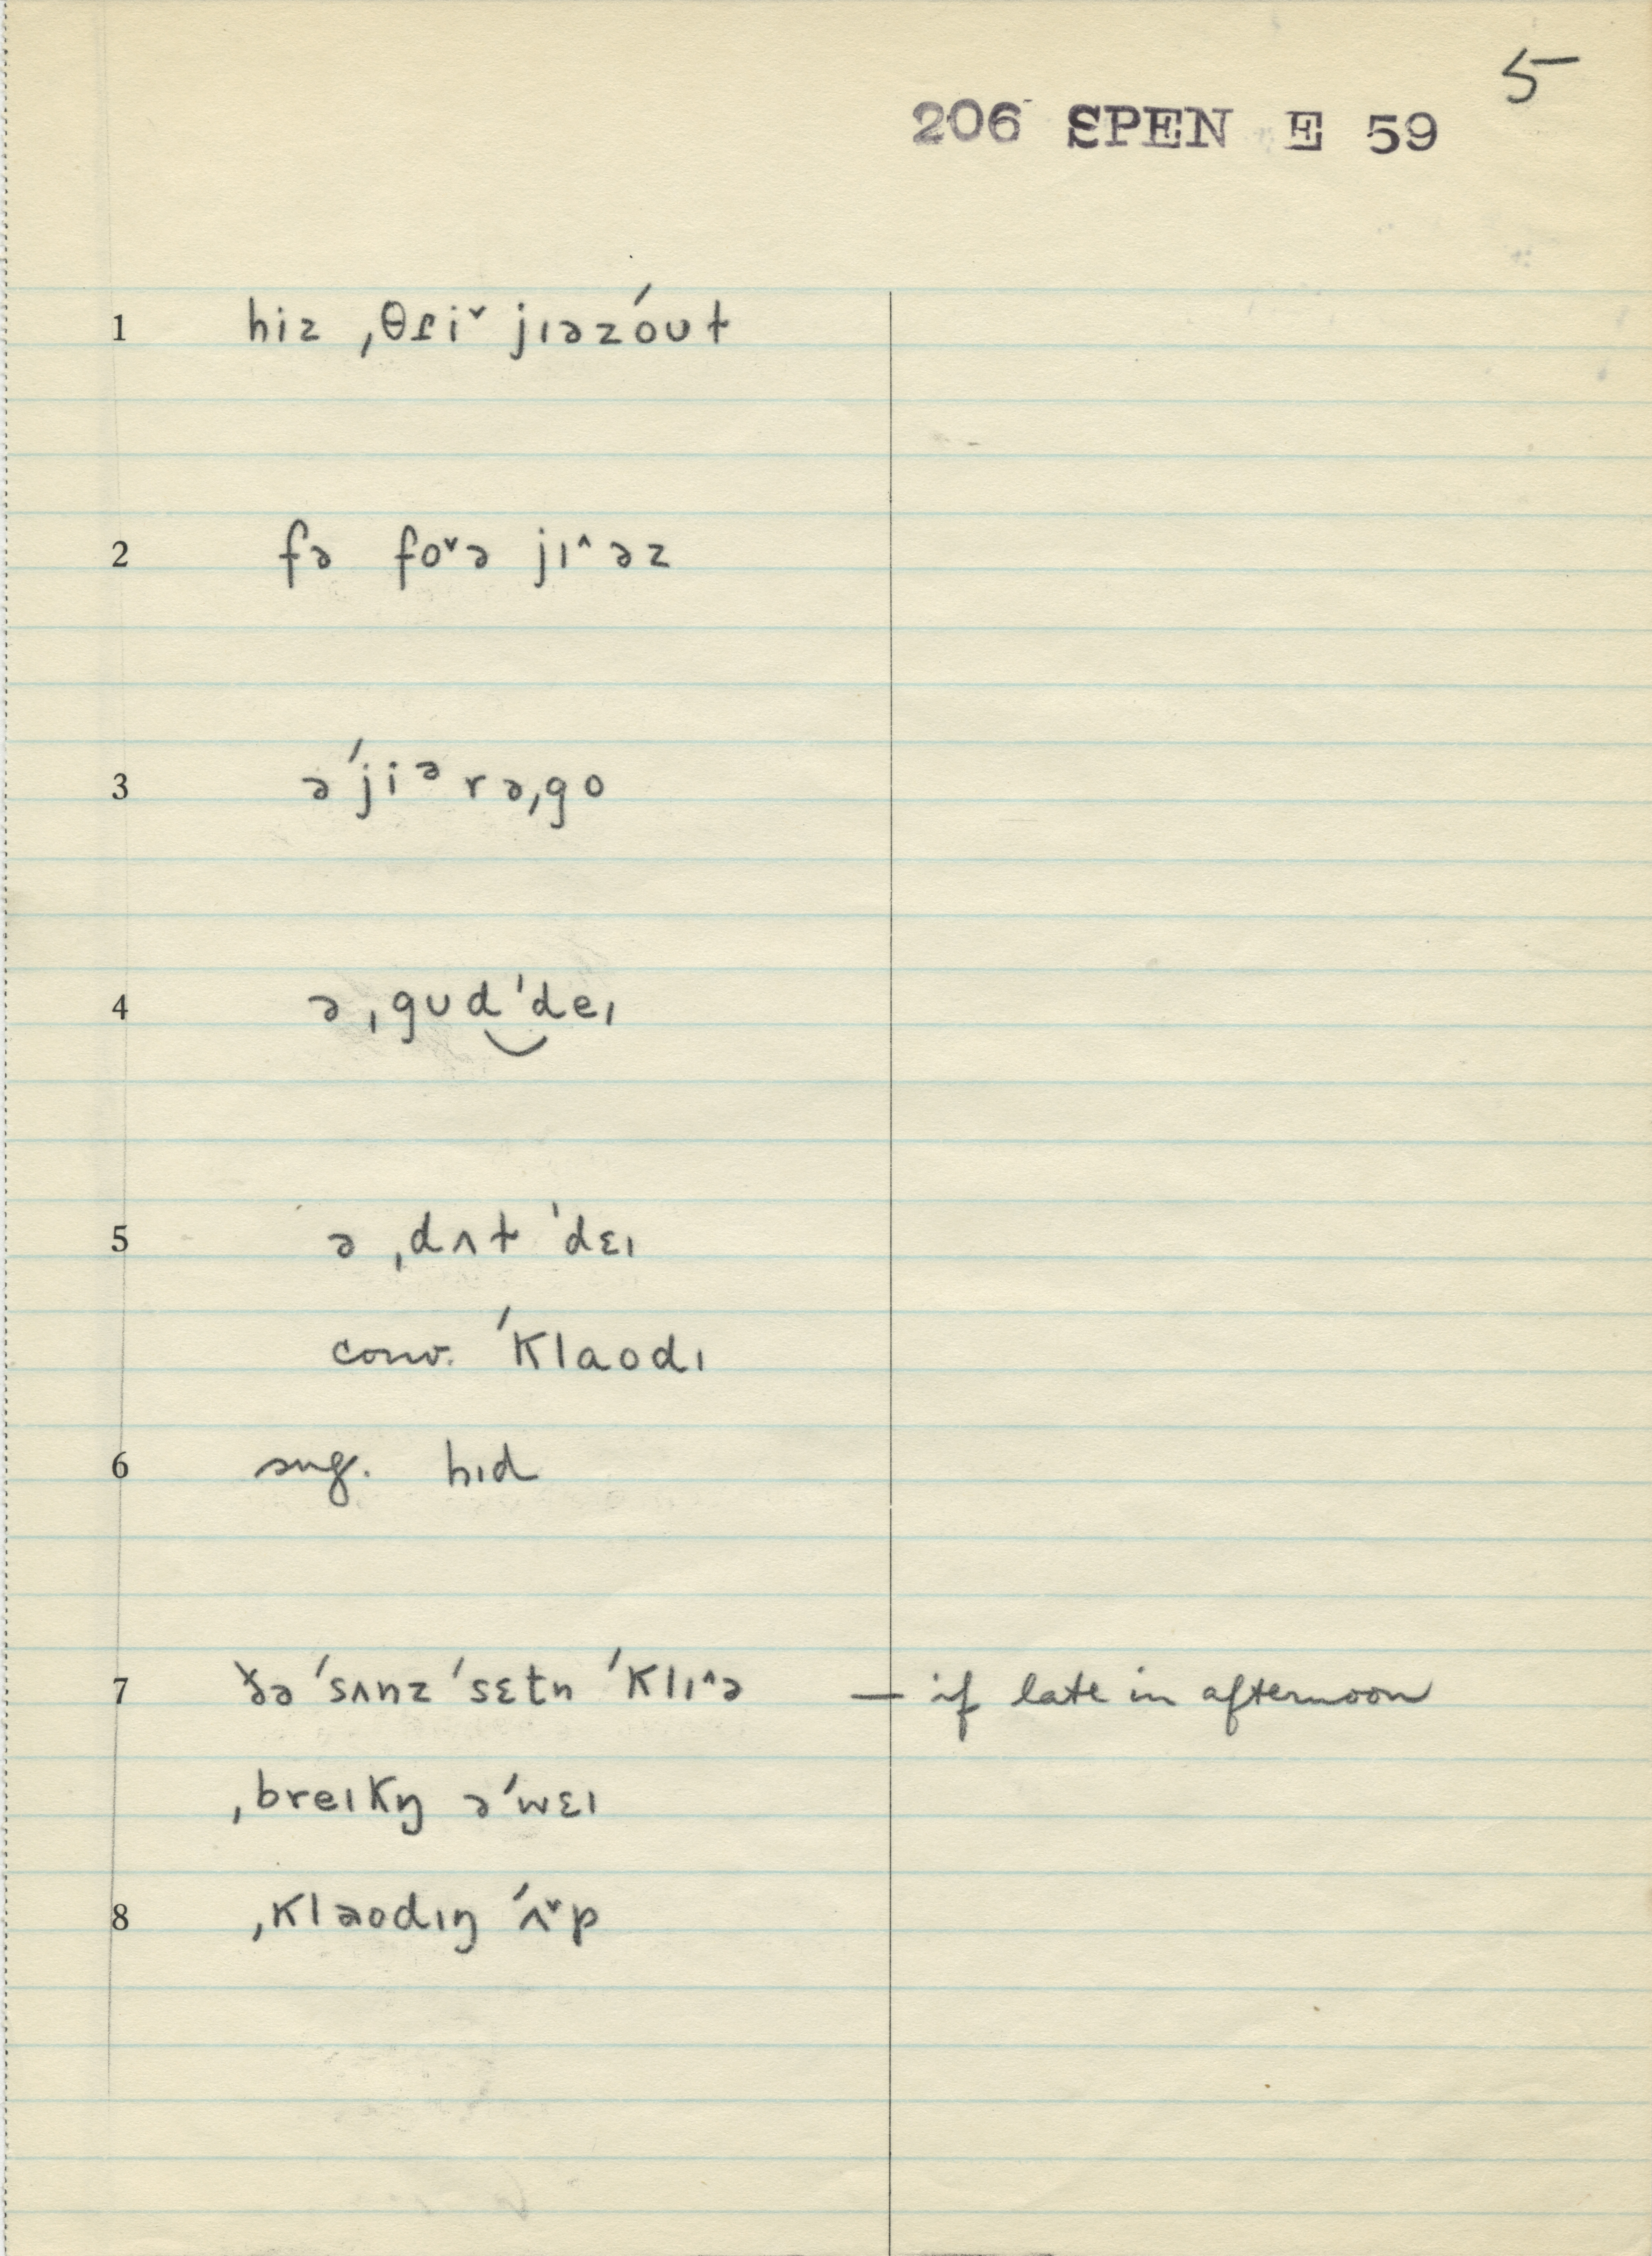 5
206 SPEN E 59
1 hiz ˌθɾiˇ jɪəzˈoʊɫ
2 fə foˇə jɪ^əz
3 əˈjiᵊrəˌgo
4 ə ˌgʊd‿ˈdeɪ
5 ə ˌdʌɫ ˈdɛɪ
conv. ˈklaodɪ
6 sug. hɪd
7 ðə ˈsʌnz ˈsɛtn ˈklɪ^ə — if late in afternoon
ˌbreɪkŋ əˈwɛɪ
8 ˌklaodɪŋ ˈʌˇp